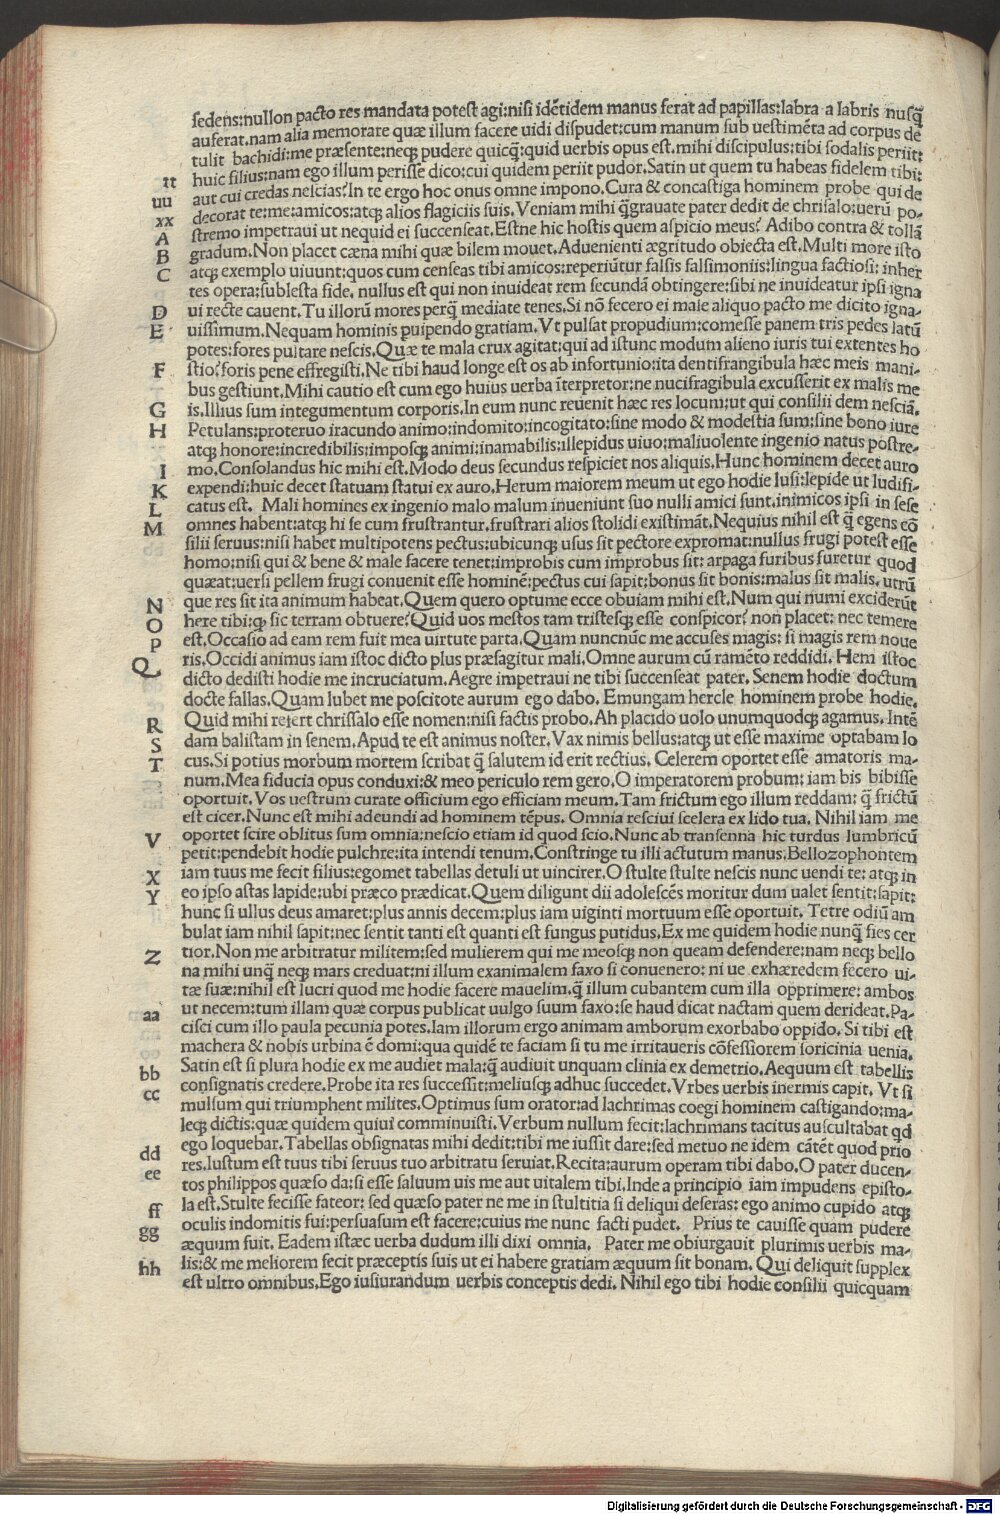 sedens:nullon pacto res mandata potest agi:nisi idētidem manus ferat ad papillas:labra a labris nusq̄
auferat.nam alia memorare quæ illum facere uidi dispudet:cum manum sub uestimēta ad corpus de
tulit bachidi:me præsente:neqꝫ pudere quicq̄:quid uerbis opus est.mihi discipulus:tibi sodalis periit:
huic filius:nam ego illum perisse dico:cui quidem periit pudor.Satin ut quem tu habeas fidelem tibi:
tt aut cui credas nescias?In te ergo hoc onus omne impono.Cura & concastiga hominem probe qui de
uu decorat te:me:amicos:atqꝫ alios flagiciis suis.Veniam mihi q̄grauate pater dedit de chrisalo:uerū po-
xx stremo impetraui ut nequid ei succenseat.Estne hic hostis quem aspicio meus? Adibo contra & tollā
A gradum.Non placet cæna mihi quæ bilem mouet.Aduenienti ægritudo obiecta est.Multi more isto
B atqꝫ exemplo uiuunt:quos cum censeas tibi amicos:reperiūtur falsis falsimoniis:lingua factiosi: inher
C tes opera:sublesta fide. nullus est qui non inuideat rem secundā obtingere:sibi ne inuideatur ipsi igna
D ui recte cauent.Tu illorū mores perq̄ mediate tenes.Si nō fecero ei male aliquo pacto me dicito igna-
E uissimum.Nequam hominis puipendo gratiam.Vt pulsat propudium:comesse panem tris pedes latū
potes:fores pultare nescis.Quæ te mala crux agitat:qui ad istunc modum alieno iuris tui extentes ho
F stio?foris pene effregisti.Ne tibi haud longe est os ab infortunio:ita dentifrangibula hæc meis mani-
bus gestiunt.Mihi cautio est cum ego huius uerba īterpretor:ne nucifragibula excusserit ex malis me
G is.Illius sum integumentum corporis.In eum nunc reuenit hæc res locum:ut qui consilii dem nesciā.
H Petulans:proteruo iracundo animo:indomito:incogitato:sine modo & modestia sum:sine bono iure
atqꝫ honore:incredibilis:imposqꝫ animi:inamabilis:illepidus uiuo:maliuolente ingenio natus postre-
I mo.Consolandus hic mihi est.Modo deus secundus respiciet nos aliquis.Hunc hominem decet auro
K expendi:huic decet statuam statui ex auro.Herum maiorem meum ut ego hodie lusi:lepide ut ludifi-
L catus est. Mali homines ex ingenio malo malum inueniunt suo nulli amici sunt.inimicos ipsi in sese
M omnes habent:atqꝫ hi se cum frustrantur.frustrari alios stolidi existimāt.Nequius nihil est q̄ egens cō
silii seruus:nisi habet multipotens pectus:ubicunqꝫ usus sit pectore expromat:nullus frugi potest esse
homo:nisi qui & bene & male facere tenet:improbis cum improbus sit: arpaga furibus furetur quod
quæat:uersi pellem frugi conuenit esse hominē:pectus cui sapit:bonus sit bonis:malus sit malis. utrū
N que res sit ita animum habeat.Quem quero optume ecce obuiam mihi est.Num qui numi exciderūt
O here tibi:qꝫ sic terram obtuere?Quid uos mestos tam tristesqꝫ esse conspicor? non placet: nec temere
P est.Occasio ad eam rem fuit mea uirtute parta.Quam nuncnūc me accuses magis: si magis rem noue
Q ris.Occidi animus iam istoc dicto plus præsagitur mali.Omne aurum cū ramēto reddidi. Hem istoc
dicto dedisti hodie me incruciatum.Aegre impetraui ne tibi succenseat pater. Senem hodie doctum
docte fallas.Quam lubet me poscitote aurum ego dabo. Emungam hercle hominem probe hodie.
R Quid mihi refert chrissalo esse nomen:nisi factis probo.Ah placido uolo unumquodqꝫ agamus. Intē
S dam balistam in senem.Apud te est animus noster.Vax nimis bellus:atqꝫ ut esse maxime optabam lo
T cus.Si potius morbum mortem scribat q̄ salutem id erit rectius. Celerem oportet esse amatoris ma-
num.Mea fiducia opus conduxi:& meo periculo rem gero.O imperatorem probum: iam bis bibisse
oportuit. Vos uestrum curate officium ego efficiam meum.Tam frictum ego illum reddam: q̄ frictū
est cicer.Nunc est mihi adeundi ad hominem tēpus. Omnia resciui scelera ex lido tua. Nihil iam me
V oportet scire oblitus sum omnia:nescio etiam id quod scio.Nunc ab transenna hic turdus lumbricū
petit:pendebit hodie pulchre:ita intendi tenum.Constringe tu illi actutum manus.Bellozophontem
X iam tuus me fecit filius:egomet tabellas detuli ut uincirer.O stulte stulte nescis nunc uendi te: atqꝫ in
Y eo ipso astas lapide:ubi præco prædicat.Quem diligunt dii adolescēs moritur dum ualet sentit:sapit:
hunc si ullus deus amaret:plus annis decem:plus iam uiginti mortuum esse oportuit. Tetre odiū am
bulat iam nihil sapit:nec sentit tanti est quanti est fungus putidus.Ex me quidem hodie nunq̄ fies cer
Z tior.Non me arbitratur militem:sed mulierem qui me meosqꝫ non queam defendere:nam neqꝫ bello
na mihi unq̄ neqꝫ mars creduat:ni illum exanimalem faxo si conuenero: ni ue exhæredem fecero ui-
tæ suæ:nihil est lucri quod me hodie facere mauelim.q̄ illum cubantem cum illa opprimere: ambos
aa ut necem:tum illam quæ corpus publicat uulgo suum faxo:se haud dicat nactam quem derideat.Pa-
cisci cum illo paula pecunia potes.Iam illorum ergo animam amborum exorbabo oppido. Si tibi est
machera & nobis urbina ē domi:qua quidē te faciam si tu me irritaueris cōfessiorem soricinia uenia.
bb Satin est si plura hodie ex me audiet mala:q̄ audiuit unquam clinia ex demetrio.Aequum est tabellis
cc consignatis credere.Probe ita res successit:meliusqꝫ adhuc succedet. Vrbes uerbis inermis capit. Vt si
mulsum qui triumphent milites.Optimus sum orator:ad lachrimas coegi hominem castigando:ma-
leqꝫ dictis:quæ quidem quiui comminuisti.Verbum nullum fecit:lachrimans tacitus auscultabat qd
dd ego loquebar.Tabellas obsignatas mihi dedit:tibi me iussit dare:sed metuo ne idem cātēt quod prio
ee res.Iustum est tuus tibi seruus tuo arbitratu seruiat.Recita:aurum operam tibi dabo.O pater ducen-
tos philippos quæso da:si esse saluum uis me aut uitalem tibi.Inde a principio iam impudens episto-
ff la est.Stulte fecisse fateor: sed quæso pater ne me in stultitia si deliqui deseras: ego animo cupido atqꝫ
gg oculis indomitis fui:persuasum est facere:cuius me nunc facti pudet. Prius te cauisse quam pudere
æquum fuit. Eadem istæc uerba dudum illi dixi omnia. Pater me obiurgauit plurimis uerbis ma-
hh lis:& me meliorem fecit præceptis suis ut ei habere gratiam æquum sit bonam. Qui deliquit supplex
est ultro omnibus.Ego iusiurandum uerbis conceptis dedi. Nihil ego tibi hodie consilii quicquam
Digitalisierung gefördert durch die Deutsche Forschungsgemeinschaft - DFG